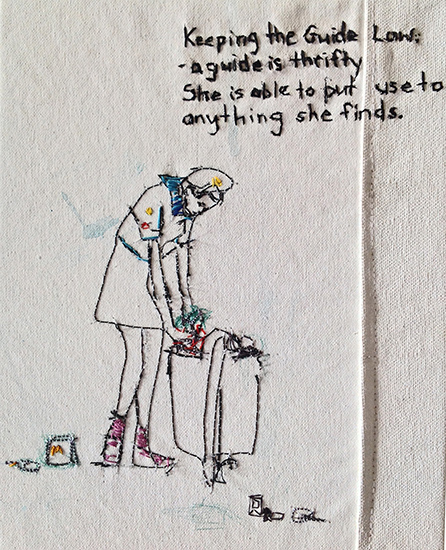 Keeping the Guide Law:
- a guide is thrifty
She is able to put use to
anything she finds.
M